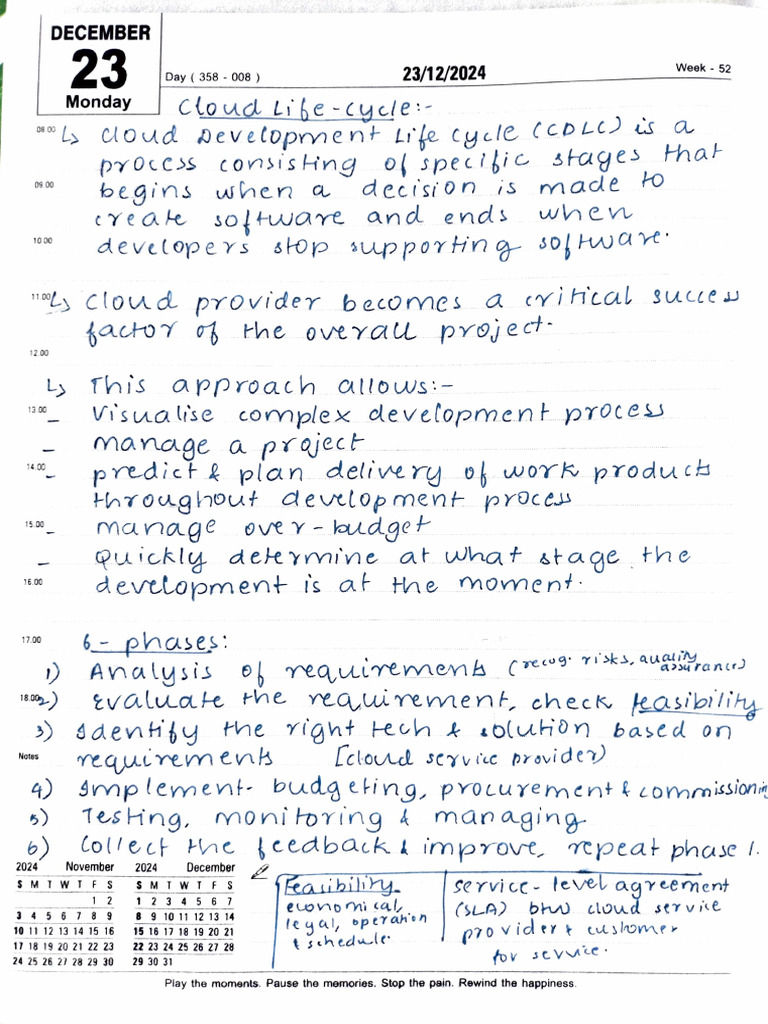 DECEMBER
23
Monday
Day ( 358 - 008 )
23/12/2024
Week - 52
Cloud Life-cycle:-
08.00 ↳ Cloud Development Life Cycle (CDLC) is a
process consisting of specific stages that
09.00 begins when a decision is made to
create software and ends when
10.00 developers stop supporting software.
11.00 ↳ Cloud provider becomes a critical success
factor of the overall project.
12.00
↳ This approach allows:-
13.00 - Visualise complex development process
- manage a project
14.00 - predict & plan delivery of work products
throughout development process
15.00 - manage over-budget
- Quickly determine at what stage the
16.00 development is at the moment.
17.00 6 - phases:
1) Analysis of requirements (recog. risks, quality assurance)
18.00 2) Evaluate the requirement, check feasibility
3) Identify the right tech & solution based on
Notes requirements [cloud service provider)
4) Implement- budgeting, procurement & commissioning
5) Testing, monitoring & managing
6) Collect the feedback & improve, repeat phase 1.
2024 November
S M T W T F S
1 2
3 4 5 6 7 8 9
10 11 12 13 14 15 16
17 18 19 20 21 22 23
24 25 26 27 28 29 30
2024 December
S M T W T F S
1 2 3 4 5 6 7
8 9 10 11 12 13 14
15 16 17 18 19 20 21
22 23 24 25 26 27 28
29 30 31
Feasibility
economical,
legal, operation
& schedule.
service-level agreement
(SLA) btw cloud service
provider & customer
for service.
Play the moments. Pause the memories. Stop the pain. Rewind the happiness.